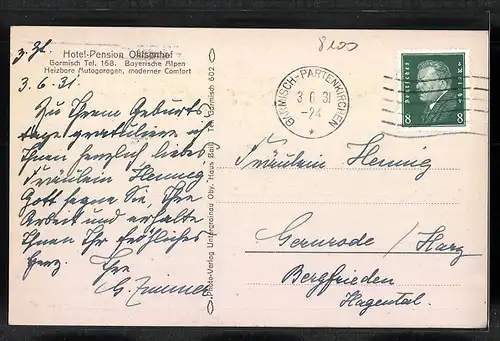 3. 31.
8,00
Hotel-Pension Ohlsenhof
Garmisch Tel. 168. Bayerische Alpen
Heizbare Autogaragen, moderner Comfort
3. 6. 31.
Zu Ihrem Geburts-
tage gratuliere ich
Ihnen herzlich liebes
Fräulein Hennig
Gott segne Sie, Ihre
Arbeit und erhalte
Ihnen Ihr fröhliches
Herz. Ihre
G. Zimmer
Photo-Verlag Untergrainau Oby. Haus Bail Tel. Garmisch 602
GARMISCH-PARTENKIRCHEN
3 6 31
-24
Deutsches Reich
8 8
Fräulein Hennig
Gernrode / Harz
Bergfrieden
Hagental.